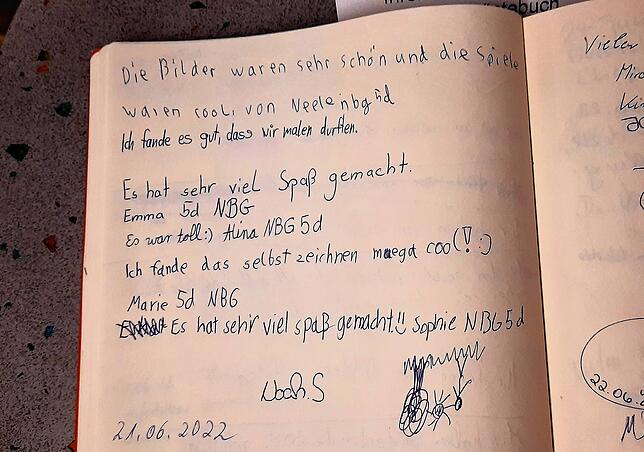 Die Bilder waren sehr schön und die Spiele
waren cool. von Neele nbg 5d
Ich fande es gut, dass wir malen durften.
Es hat sehr viel Spaß gemacht.
Emma 5d NBG
Es war toll:) Alina NBG 5d
Ich fande das selbst zeichnen maega cool! :)
Marie 5d NBG
Es hat sehr viel spaß gemacht!! Sophie NBG 5d
Noah.S
21.06.2022
Vielen
22.06.